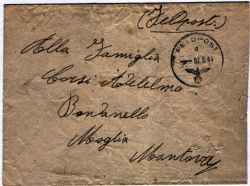 (Feldpost)
FELDPOST
a
Alla Famiglia
Corsi Adelelmo
Bondanello
Moglia
Mantova